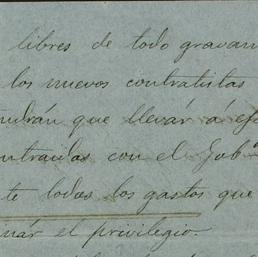 libres de todo gravam
los nuevos contratistas
ndrán que llevár á ef
ontraidas con el Gobº
te todos los gastos que
nár el privilegio.